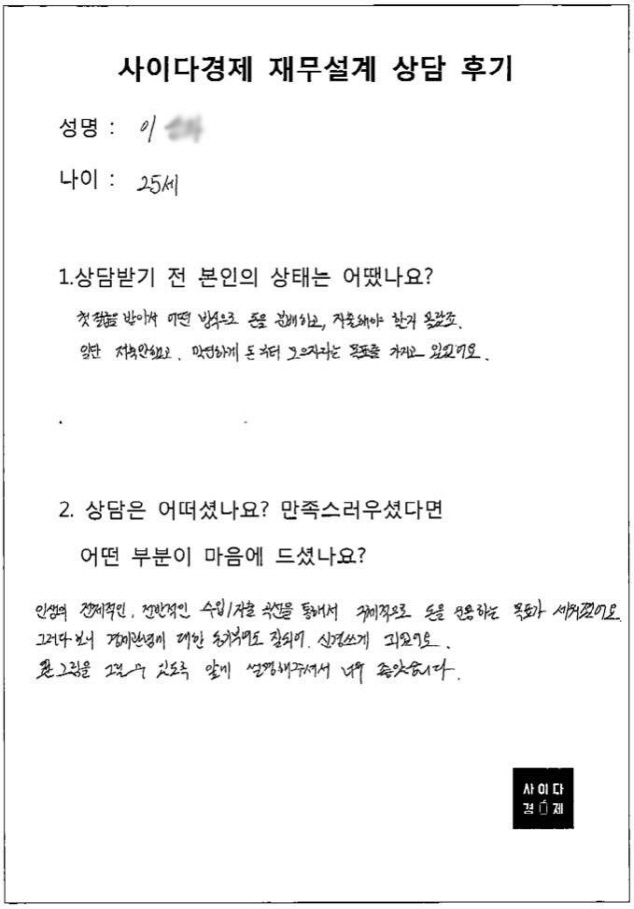 사이다경제 재무설계 상담 후기
성명 : 이
나이 : 25세
1.상담받기 전 본인의 상태는 어땠나요?
첫 월급을 받아서 어떤 방식으로 돈을 분배하고, 지출해야 한지 몰랐죠.
일단 저축안하고, 막연하게 돈부터 모으자라는 목표를 가지고 있었어요.
2. 상담은 어떠셨나요? 만족스러우셨다면
어떤 부분이 마음에 드셨나요?
인생의 전체적인, 전반적인 수입/지출 곡선을 통해서 구체적으로 돈을 운용하는 목표가 세워졌어요
그러다 보니 경제관념에 대한 동기부여도 잘되어, 신경쓰게 되었어요.
큰 그림을 그릴 수 있도록 알기 설명해주셔서 너무 좋았습니다.
사이다
경제